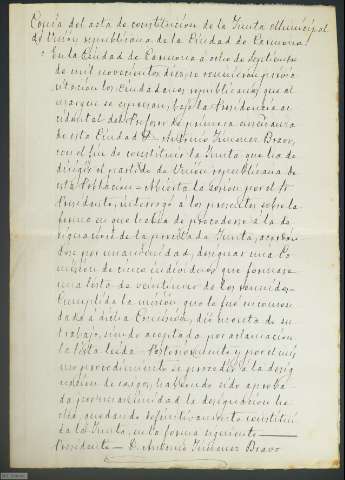 Copia del acta de constitución de la Junta Municipal
de Unión republicana de la Ciudad de Carmona
En la Ciudad de Carmona a ocho de Septiembre
de mil novecientos tres, se reunieron previa
citación los ciudadanos republicanos que al
margen se expresan, bajo la Presidencia ac-
cidental del Profesor de primera enseñanza
de esta Ciudad D. Antonio Jimenez Bravo,
con el fin de constituir la Junta que ha de
dirigir el partido de Unión republicana de
esta Poblacion = Abierta la sesion por el Sr
Presidente, interrogó a los presentes sobre la
forma en que había de procederse a la de-
signación de la precitada Junta, acordán-
dose por unanimidad, designar una Co-
misión de cinco individuos que formase
una lista de veintinueve de los reunidos =
Cumplida la misión que le fué encomen-
dada á dicha Comisión, dió cuenta de su
trabajo, siendo aceptada por aclamación
la lista leida = Posteriormente y por el mis-
mo procedimiento se procedió a la desig-
nación de cargos, habiendo sido aproba-
da por unanimidad la designación he-
cha, quedando definitivamente constitui-
da la Junta, en la forma siguiente
Presidente = D. Antonio Jimenez Bravo